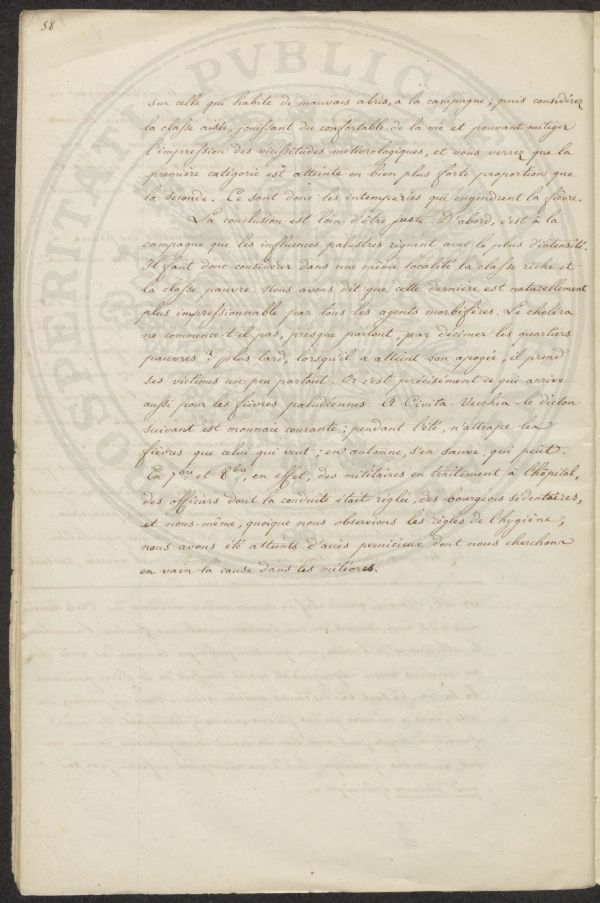 58
sur celle qui habite de mauvais abris, à la campagne ; puis considérez
la classe aisée, jouissant du confortable de la vie et pouvant mitiger
l'impression des vicissitudes météorologiques, et vous verrez que la
première catégorie est atteinte en bien plus forte proportions que
la seconde. Ce sont donc les intempéries qui engendrent la fièvre.
La conclusion est loin d'être juste. D'abord, c'est à la
campagne que les influences palustres règnent avec le plus d'intensité.
Il faut donc considérer dans une même localité la classe riche et
la classe pauvre. Nous avons dit que cette dernière est naturellement
plus impressionnable par tous les agents morbifères. Le choléra
ne commence-t-il pas, presque partout, par décimer les quartiers
pauvres ? plus tard, lorsqu'il a atteint son apogée, il prend
ses victimes un peu partout. Or c'est précisément ce qui arrive
aussi pour les fièvres paludéennes. A Civita-Vecchia le dicton
suivant est monnaie courante ; pendant l'été, n'attrape les
fièvres que celui qui veut ; en automne, s'en sauve qui peut.
En 7bre et 8bre, en effet, des militaires en traitement à l'hôpital,
des officiers dont la conduite était réglée, des bourgeois sédentaires,
et nous-même, quoique nous observions les règles de l'hygiène,
nous avons été atteints d'accès pernicieux dont nous cherchons
en vain la cause dans les météores.
PVBLICA